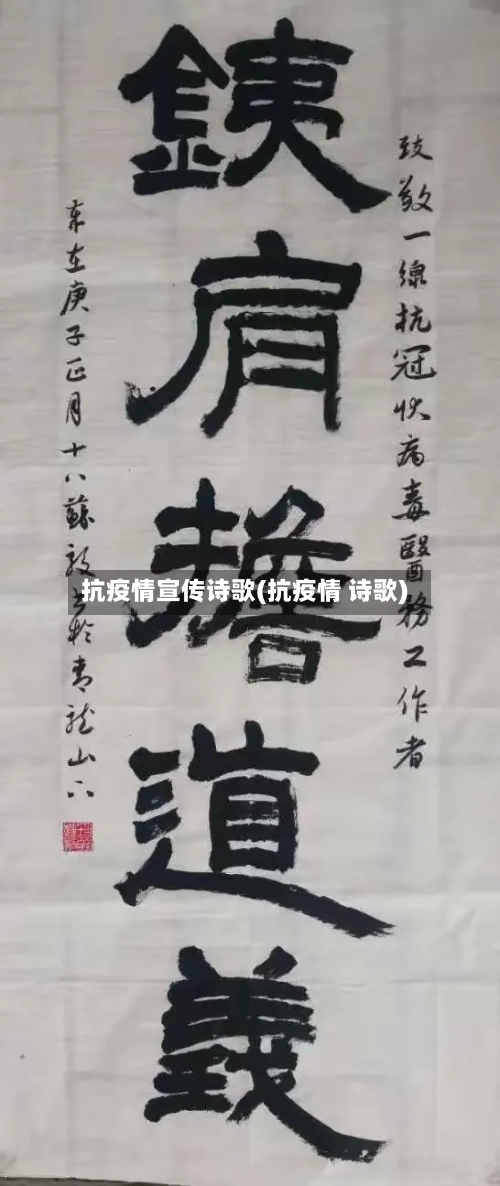 致敬一線抗冠狀病毒醫務工作者
銕肩擔道義
在庚子正月十八蘇書於青龍山下
抗疫情宣传诗歌(抗疫情 诗歌)